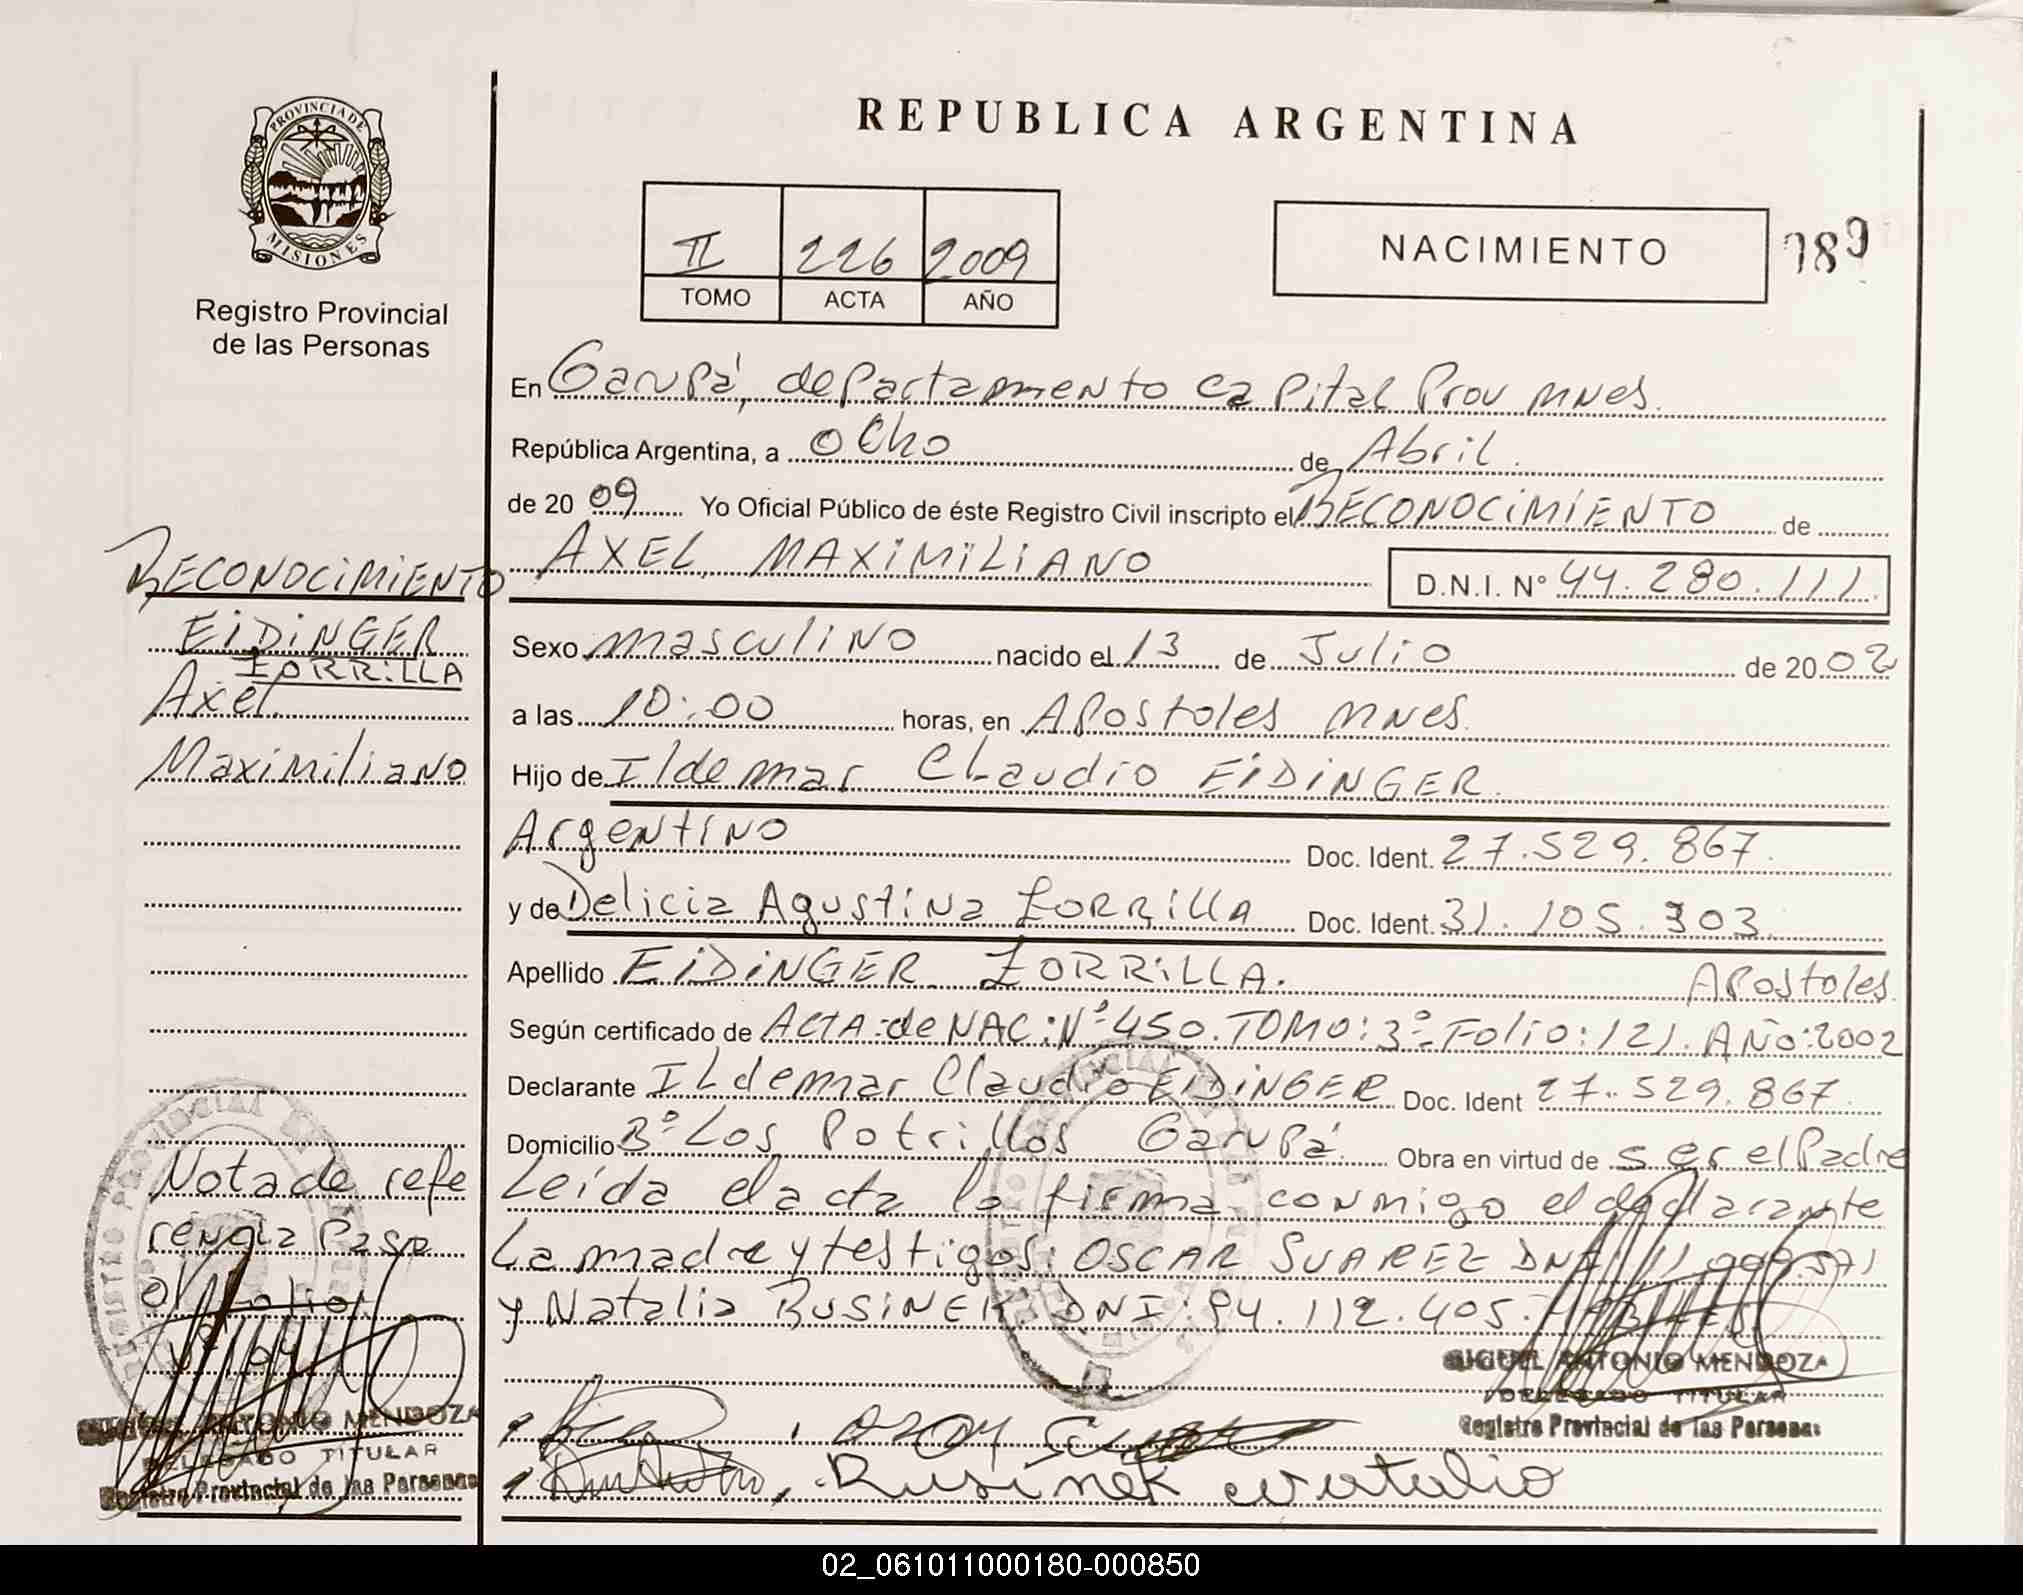 PROVINCIA DE
MISIONES
Registro Provincial
de las Personas
REPUBLICA ARGENTINA
II 226 2009
TOMO ACTA AÑO
NACIMIENTO
En Garupá, departamento Capital Prov mnes.
República Argentina, a ocho de Abril.
de 20 09 Yo Oficial Público de éste Registro Civil inscripto el RECONOCIMIENTO de
AXEL MAXIMILIANO D.N.I. Nº 44.280.111.
Sexo masculino nacido el 13 de Julio de 20 02
a las 10:00 horas, en Apostoles mnes.
Hijo de Ildemar Claudio EIDINGER.
Argentino Doc. Ident. 27.529.867.
y de Delicia Agustina ZORRILLA Doc. Ident. 31.105.303.
Apellido EIDINGER ZORRILLA. Apostoles.
Según certificado de ACTA:de NAC:Nº450.TOMO:3º.Folio:121.AÑO:2002
Declarante ILdemar Claudio EIDINGER Doc. Ident 27.529.867.
Domicilio Bº Los Potrillos Garupá. Obra en virtud de ser el Padre
Leída el acta la firma conmigo el declarante
La madre y testigos: OSCAR SUAREZ DNI:
y Natalia RUSINEK DNI:94.112.405.
MIGUEL ANTONIO MENDOZA
DELEGADO TITULAR
Registro Provincial de las Personas
Rusinek Natalia
RECONOCIMIENTO
EIDINGER
ZORRILLA
Axel
Maximiliano
Nota de refe
rencia Pasa
al folio
ANTONIO MENDOZA
DELEGADO TITULAR
Registro Provincial de las Personas
02_061011000180-000850